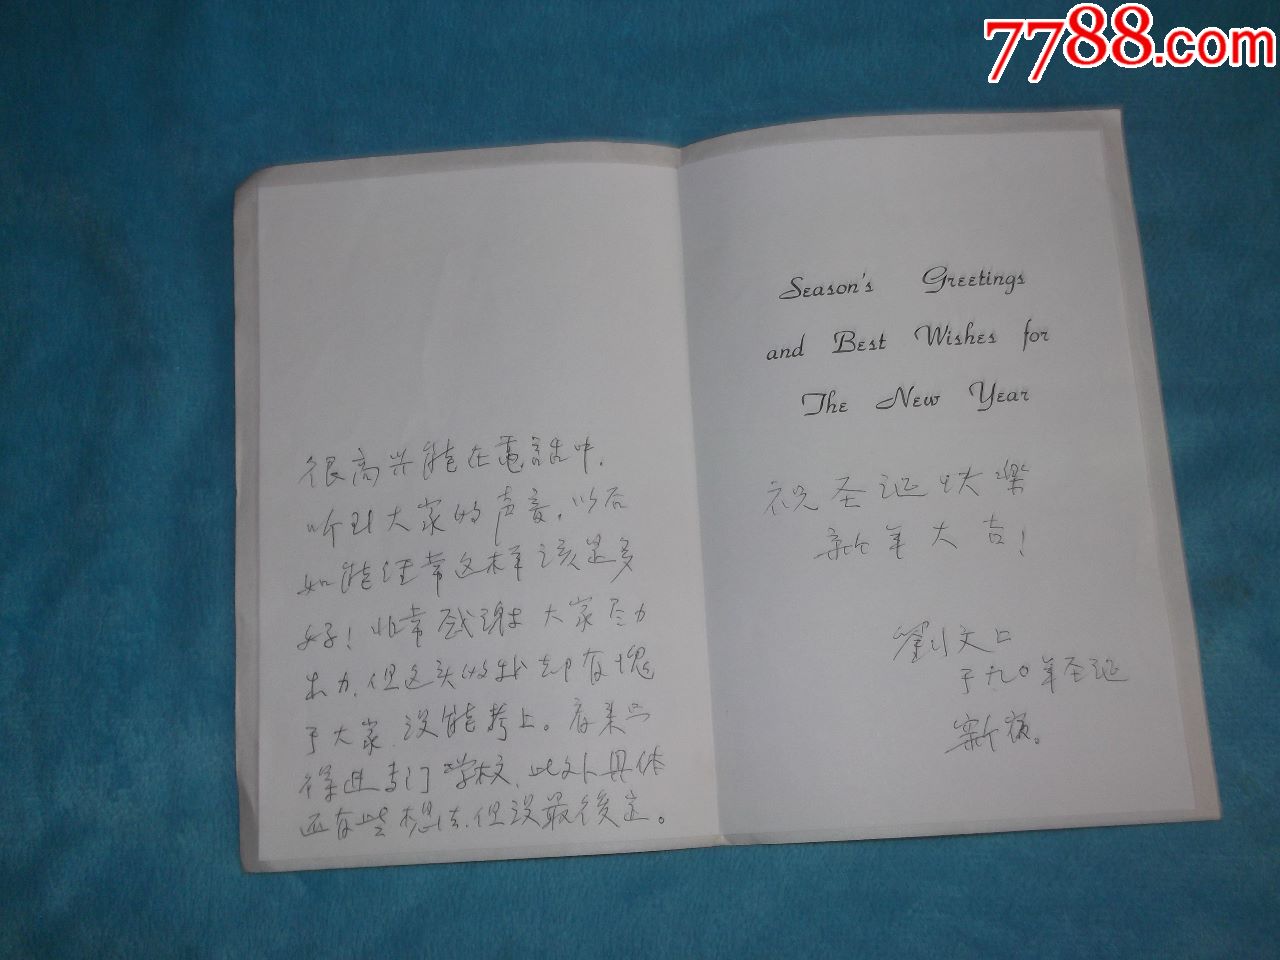 7788.com
很高兴能在電話中,
听到大家的声音,以后
如能经常这样该是多
好!非常感谢大家尽力
出力,但这头的我却有愧
于大家,没能考上。看来只
得进专门学校,此外具体
还有些想法,但没最後定。
Season's Greetings
and Best Wishes for
The New Year
祝圣诞快樂
新年大吉!
劉文口
于九〇年圣诞
新宿。